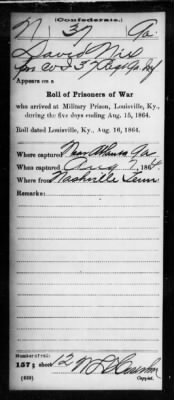 (Confederate.)
N 37 Ga.
David Nix
Co. I 37 Reg't Ga. Inf.
Appears on a
Roll of Prisoners of War
who arrived at Military Prison, Louisville, Ky.,
during the five days ending Aug. 15, 1864.
Roll dated Louisville, Ky., Aug. 16, 1864.
Where captured Near Atlanta Ga
When captured Aug 7, 1864.
Where from Nashville Tenn
Remarks:
Number of roll:
157; sheet 12
(639) Copyist.